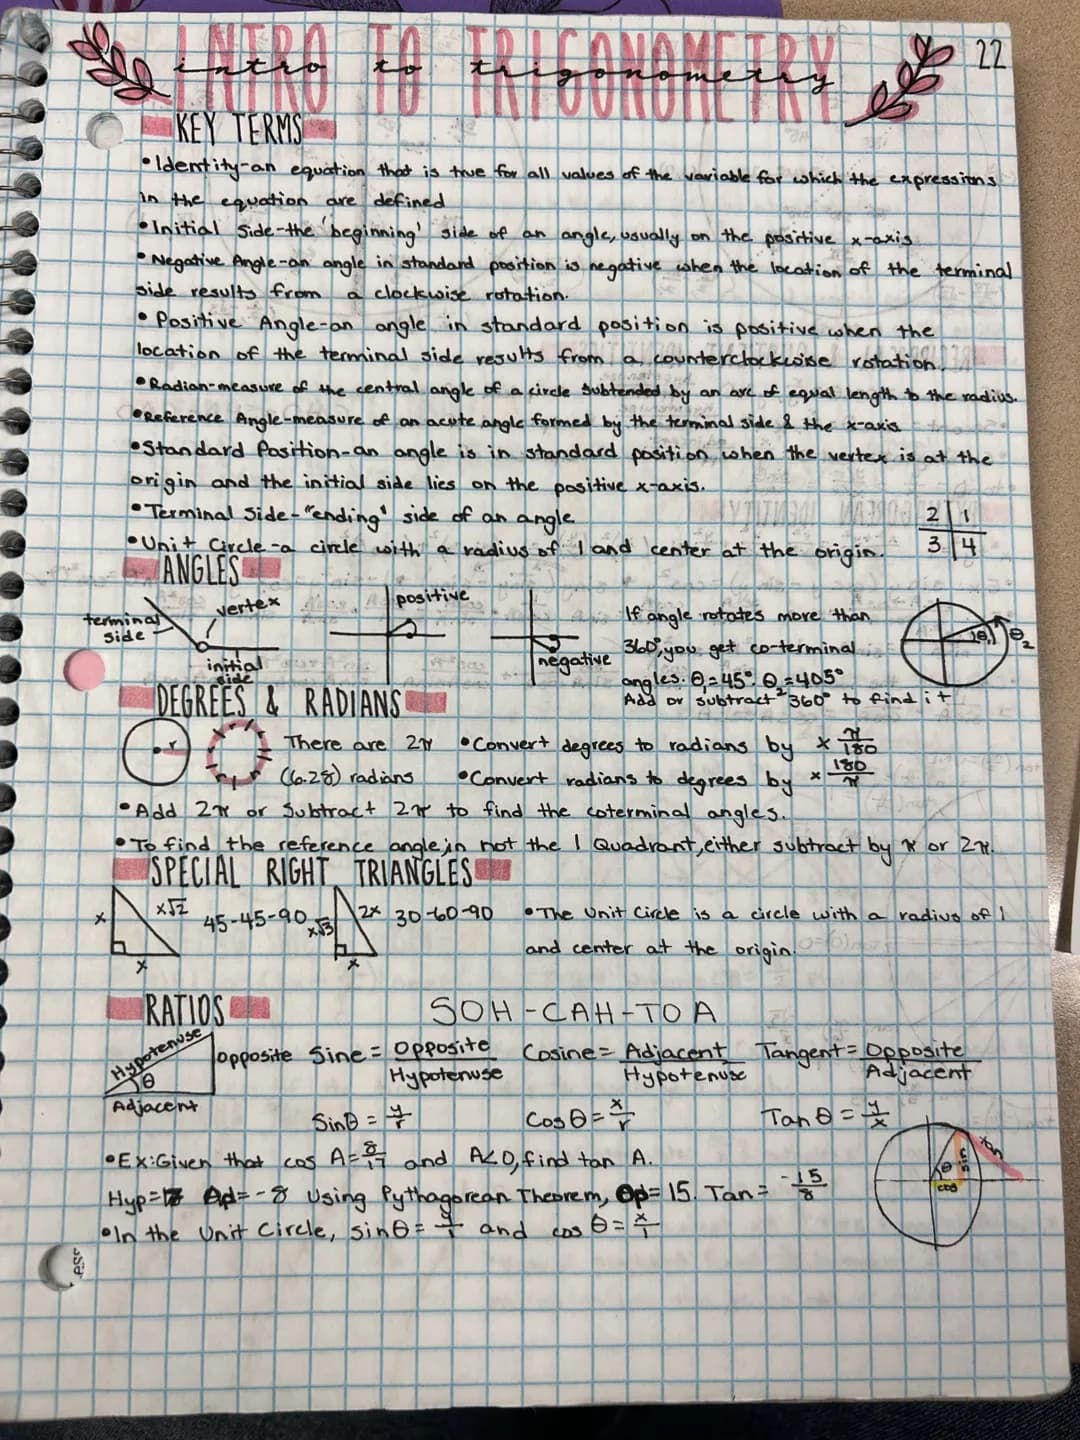 22
INTRO TO TRIGONOMETRY
intro to trigonometry
KEY TERMS
•Identity-an equation that is true for all values of the variable for which the expressions
in the equation are defined
•Initial Side-the 'beginning' side of an angle, usually on the positive x-axis
•Negative Angle-an angle in standard position is negative when the location of the terminal
side results from a clockwise rotation.
•Positive Angle-an angle in standard position is positive when the
location of the terminal side results from a counterclockwise rotation.
•Radian-measure of the central angle of a circle subtended by an arc of equal length to the radius.
•Reference Angle-measure of an acute angle formed by the terminal side & the x-axis
•Standard Position-an angle is in standard position when the vertex is at the
origin and the initial side lies on the positive x-axis.
•Terminal Side-"ending" side of an angle
2 1
3 4
•Unit Circle-a circle with a radius of 1 and center at the origin.
ANGLES
terminal side
vertex
initial side
positive
negative
If angle rotates more than
360°, you get co-terminal
angles. θ₁=45° θ₂=405°
Add or subtract 360° to find it
θ₁ θ₂
DEGREES & RADIANS
r
There are 2π
(6.28) radians
•Convert degrees to radians by × π/180
•Convert radians to degrees by × 180/π
•Add 2π or Subtract 2π to find the coterminal angles.
•To find the reference angle, in not the 1 Quadrant, either subtract by π or 2π.
SPECIAL RIGHT TRIANGLES
x x√2 x
45-45-90
x√3 2x x
30-60-90
•The Unit Circle is a circle with a radius of 1
and center at the origin.
RATIOS
SOH-CAH-TOA
Hypotenuse
θ
Opposite
Adjacent
Sine = Opposite/Hypotenuse
Cosine = Adjacent/Hypotenuse
Tangent = Opposite/Adjacent
Sinθ = y/r
Cosθ = x/r
Tanθ = y/x
•Ex: Given that cos A=8/17 and A<0, find tan A.
Hyp=17 Ad=-8 Using Pythagorean Theorem, Op=15. Tan= -15/8
•In the Unit Circle, sinθ = y/1 and cos θ = x/1
θ sin cos tan